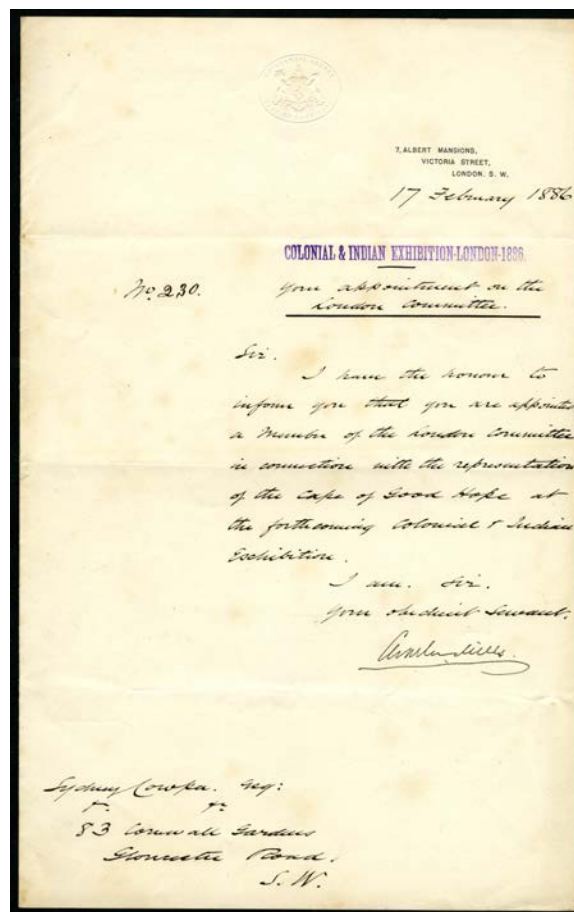 7, ALBERT MANSIONS,
VICTORIA STREET,
LONDON. S. W.
17 February 1886
COLONIAL & INDIAN EXHIBITION-LONDON-1886.
No. 230.
Your appointment on the
London Committee.
Sir.
I have the honour to
inform you that you are appointed
a Member of the London Committee
in connection with the representation
of the Cape of Good Hope at
the forthcoming Colonial & Indian
Exhibition.
I am. Sir.
Your obedient Servant.
Sydney Cowper. Esq:
83 Cornwall Gardens
Gloucester Road.
S.W.